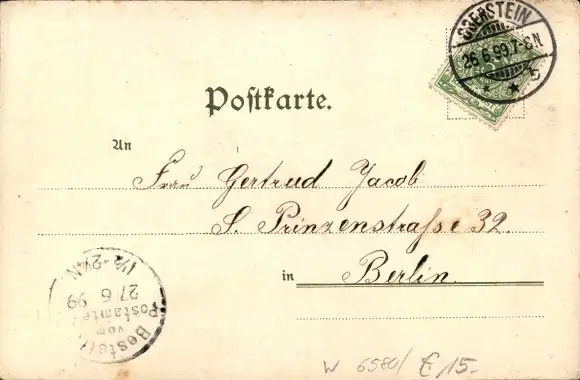 GGERSTEIN
26 6 99. 7-8 N
* * b
Postkarte.
An
Frau Gertrud Jacob
S. Prinzenstraße 32.
in Berlin.
Bestellt
vom
Postamte
27 6 99
1½-2½ N
W 6580/ € 15.-